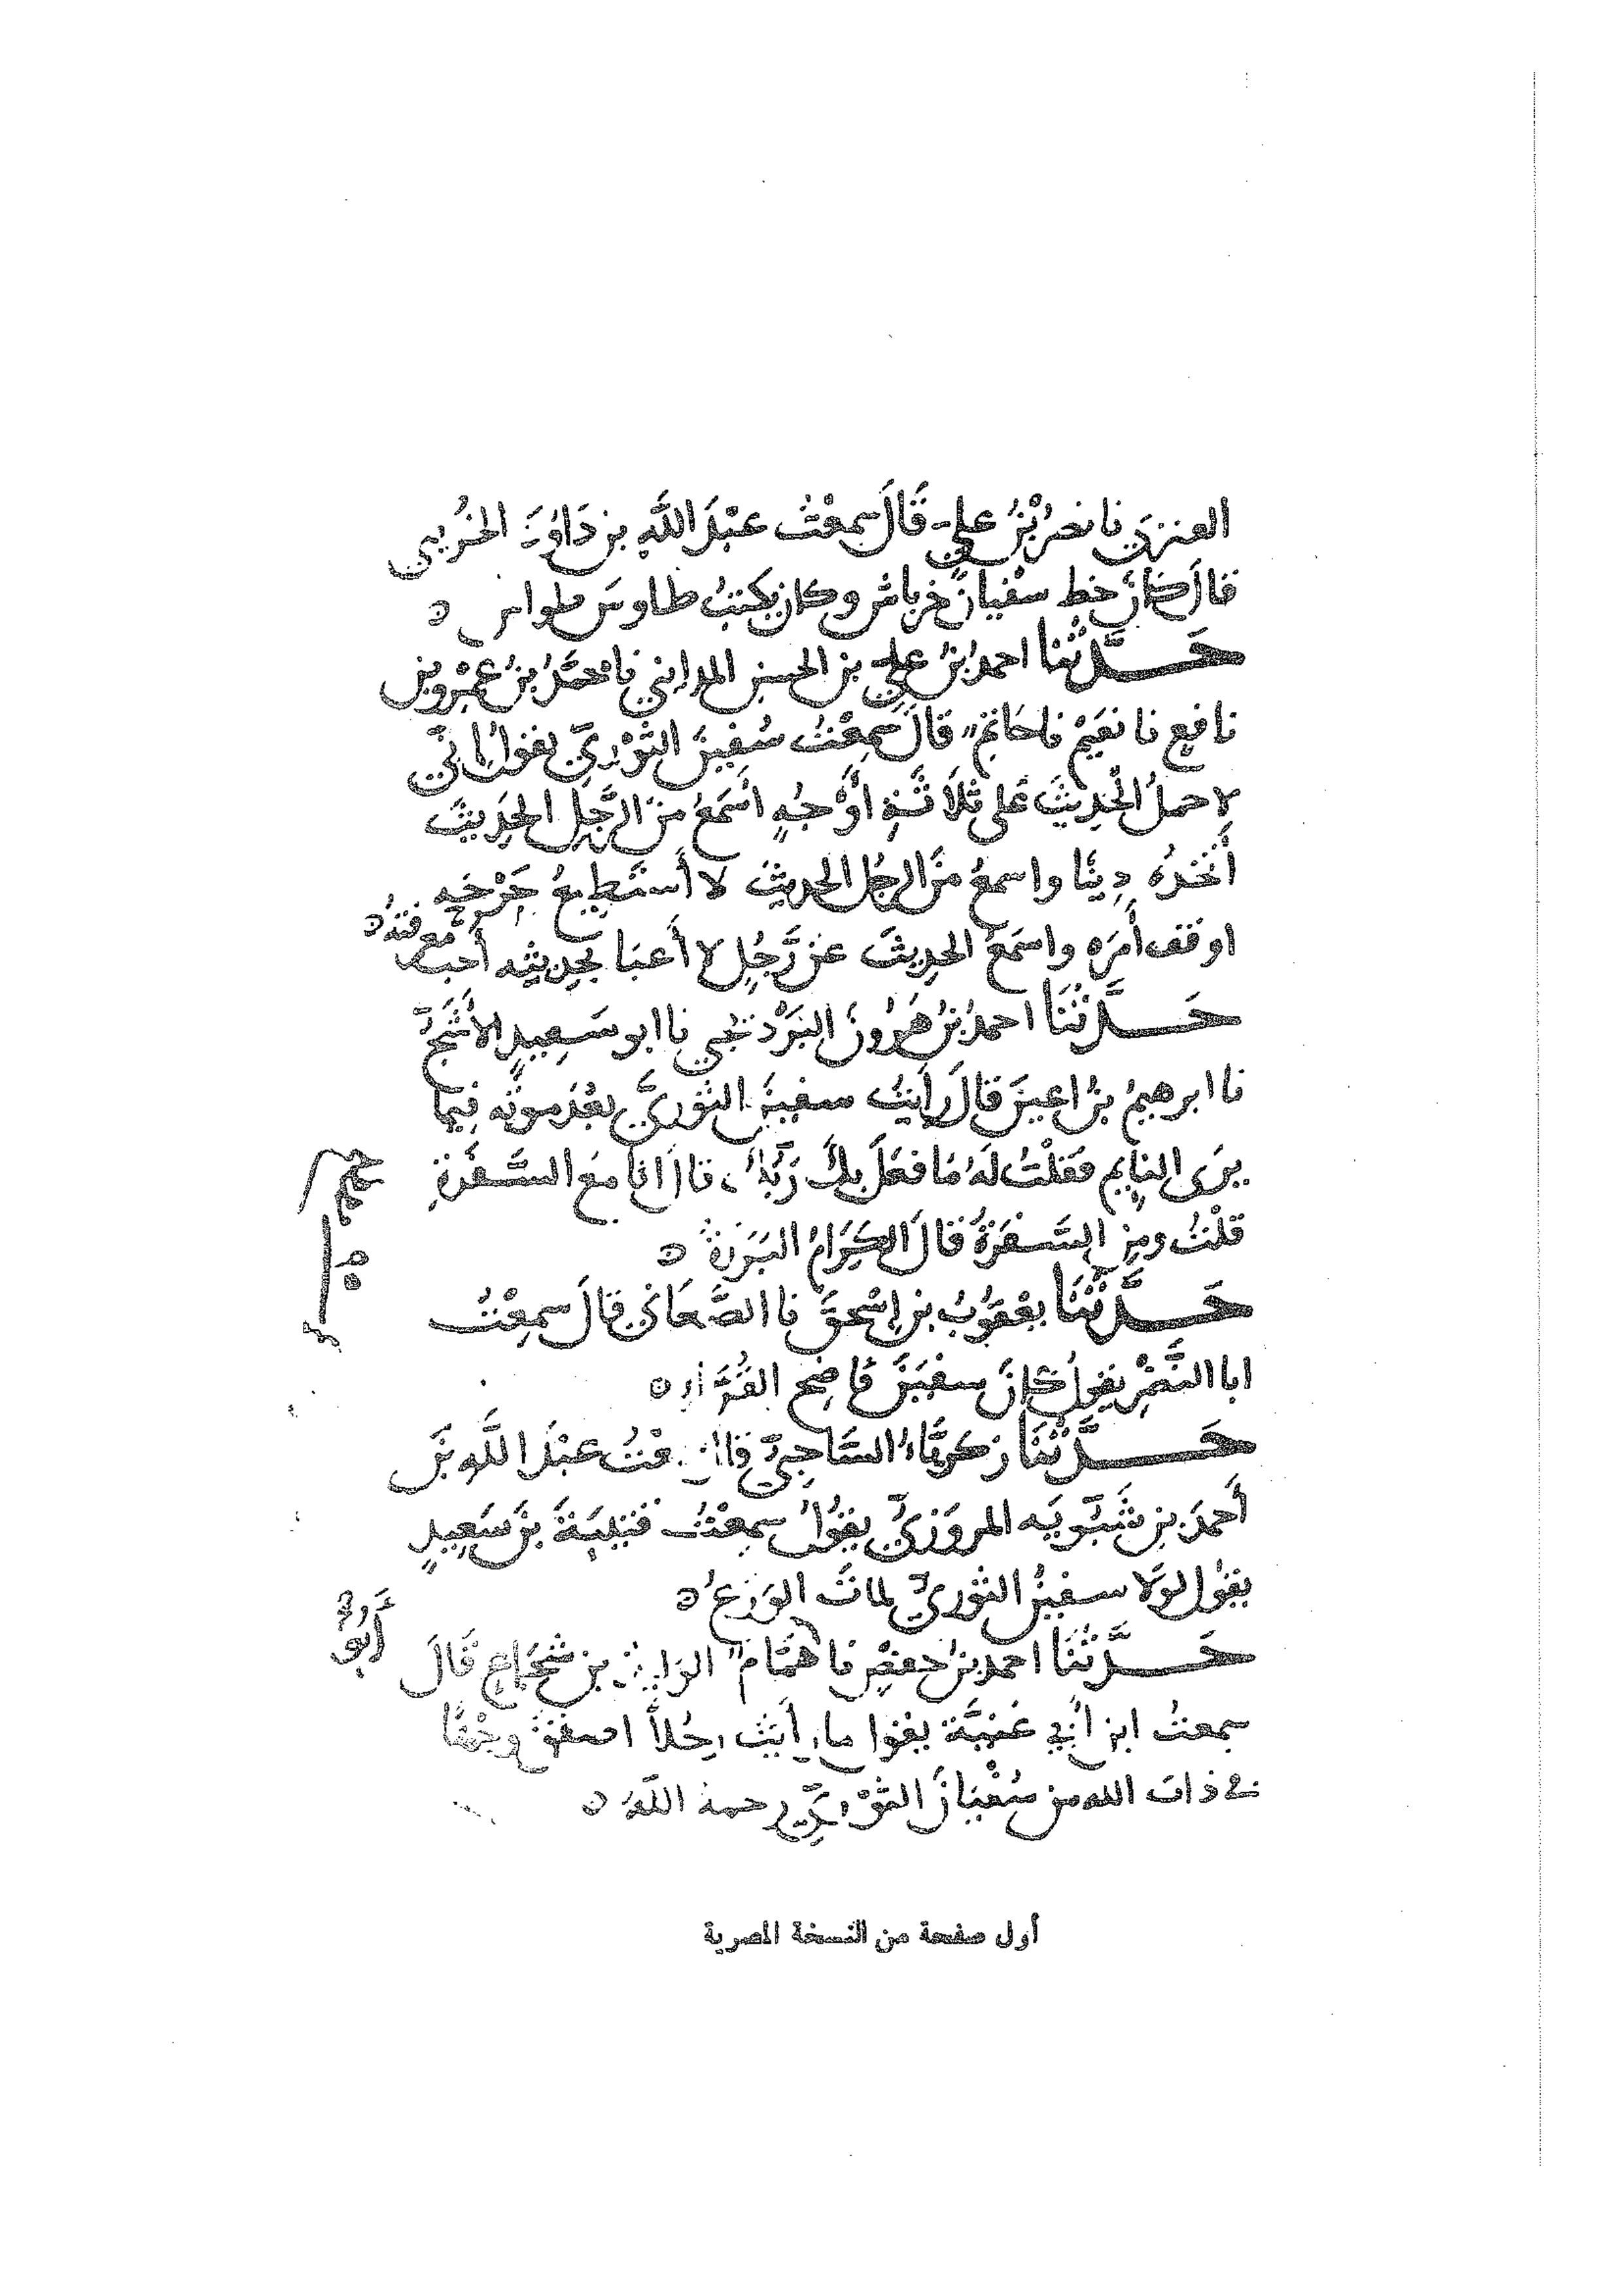 العنزي نا نصرُ بْنُ علي قَالَ سمِعْتُ عبْدَ اللَّهِ بن دَاوُدَ الخُريبي
قالَ كَانَ خط سفيانَ خرباش وكان يكتبُ طاوس طواس ه
حَدَّثَنَا احمدُ بنُ علي بن الحسن المدايني نا محمَّدُ بنُ عَمْرو بن
نافِعٍ نا نعَيْم نا حَاتِم قالَ سمِعْتُ سُفينَ الثَّوْرِيَّ يقول إنّي
لاحملُ الْحَدِيثَ على ثَلَاثَةِ أَوْجُهٍ أَسْمَعُ مِنَ الرَّجُلِ الحَدِيثَ
أَتَّخذُهُ دِينًا واسمعُ مِنَ الرجُل الحديثَ لا أستَطِيعُ جَرْحَهِ
اوقف أَمرَه واسمَعُ الحديثَ عن رَّجُلٍ لا أَعبَا بحديثِه أحب معرفته ه
حَدَّثَنَا احمدُ بنُ هَرُونَ البَرْدنجي نا ابو سَعِيدٍ الأشَجّ
نا ابرهيمُ بنُ اعينَ قالَ رأيتُ سفينَ الثوريَّ بعْدَ موته فِيما
يرَى النايم فقلْتُ لَهُ مَا فعَلَ بِكَ رَبُّكَ قال انا مَعَ السَّفَرَةِ
قلْتُ ومن السَّفَرَةُ قالَ الكِرَامُ البَرَرَةُ ه
حَدَّثَنَا يعْقُوبُ بن إسْحقَ نا الصَّغَاني قالَ سمِعْتُ
ابا النَّضْرِ يقولُ كانَ سفينَ فاضح القُرَّاء ه
حَدَّثَنَا زكريَّاءُ السَّاجِيّ قال سمعْتُ عبْدَ اللَّهِ بنَ
أحمدَ بن شَبّويَه المروَزيَّ يقُولُ سمِعْتُ قتيبَةَ بنَ سَعِيدٍ
يقول لولَا سفينُ الثوريّ لماتَ الورَع ه
حَدَّثَنَا احمدُ بنُ جعفرٍ نا همَّام الوليد بن شُجَاعٍ قَالَ
أَبُو
سمعتُ ابن أَبي غَنِيَّة يقول ما رأيتُ رجُلاً اصفق وجْهًا
في ذات الله من سُفْيَانَ الثَّوْرِيِّ رحمة اللَّهُ ه
أول صفحة من النسخة المصرية